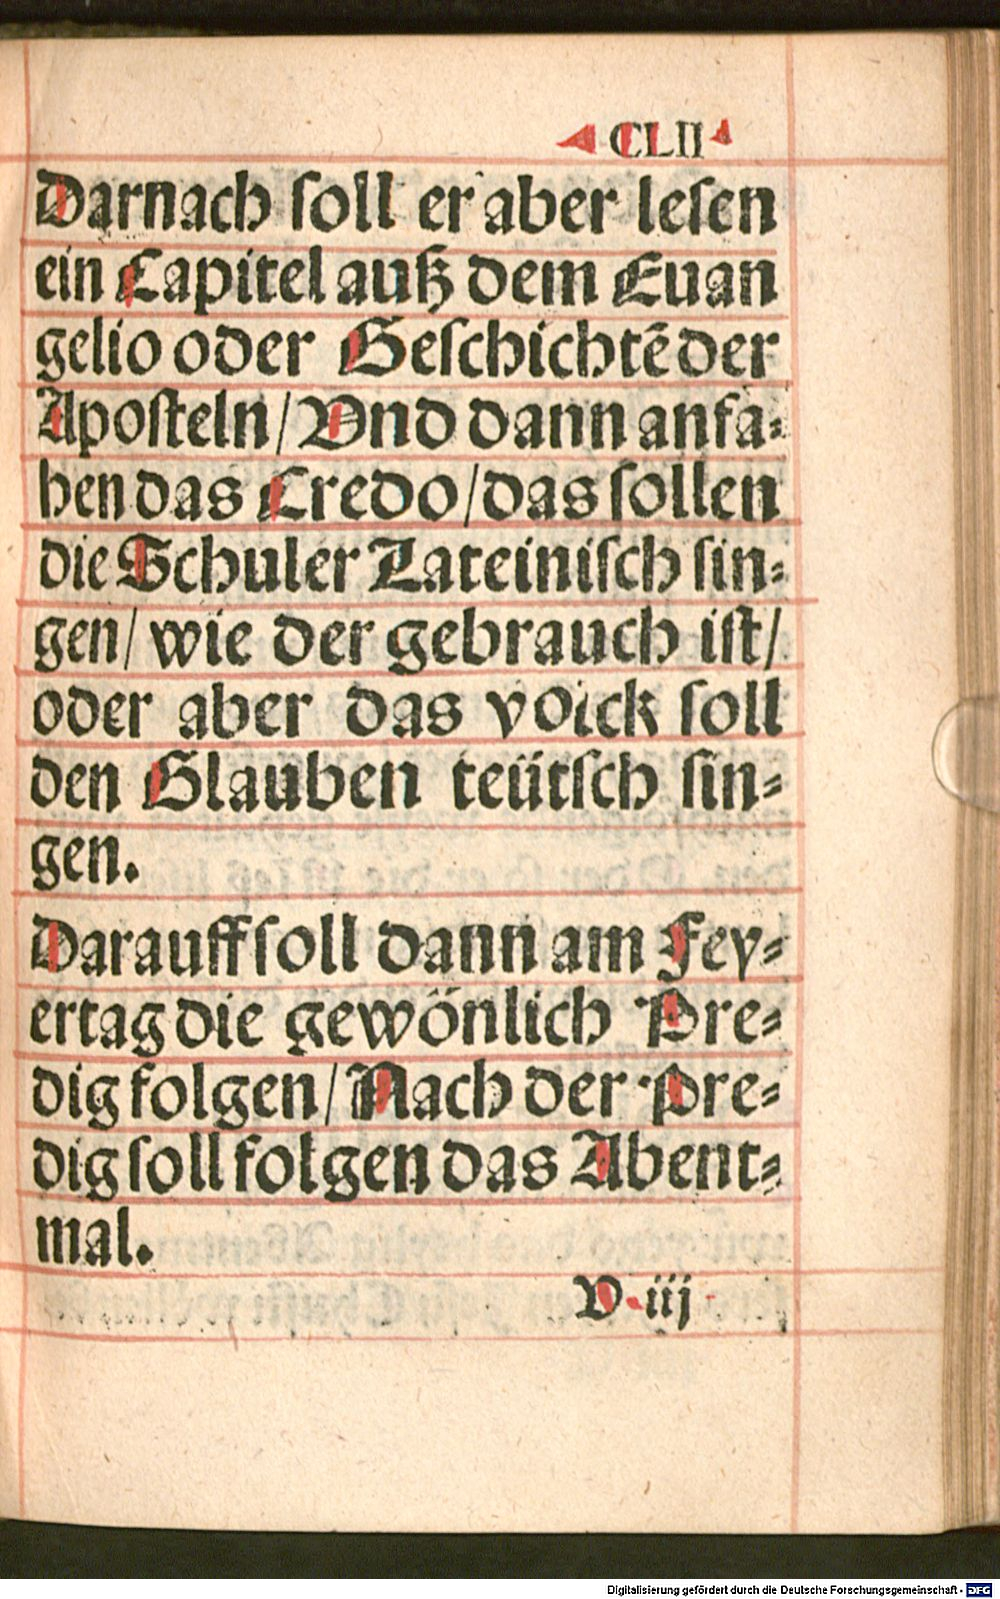 CLII
Darnach soll er aber lesen
ein Capitel auß dem Euan
gelio oder Geschichtẽ der
Aposteln/ Vnd dann anfa⸗
hen das Credo/ das sollen
die Schuler Lateinisch sin⸗
gen/ wie der gebrauch ist/
oder aber das volck soll
den Glauben teütsch sin⸗
gen.
Darauff soll dann am Fey⸗
ertag die gewönlich Pre⸗
dig folgen/ Nach der Pre⸗
dig soll folgen das Abent⸗
mal.
V iij
Digitalisierung gefördert durch die Deutsche Forschungsgemeinschaft - DFG